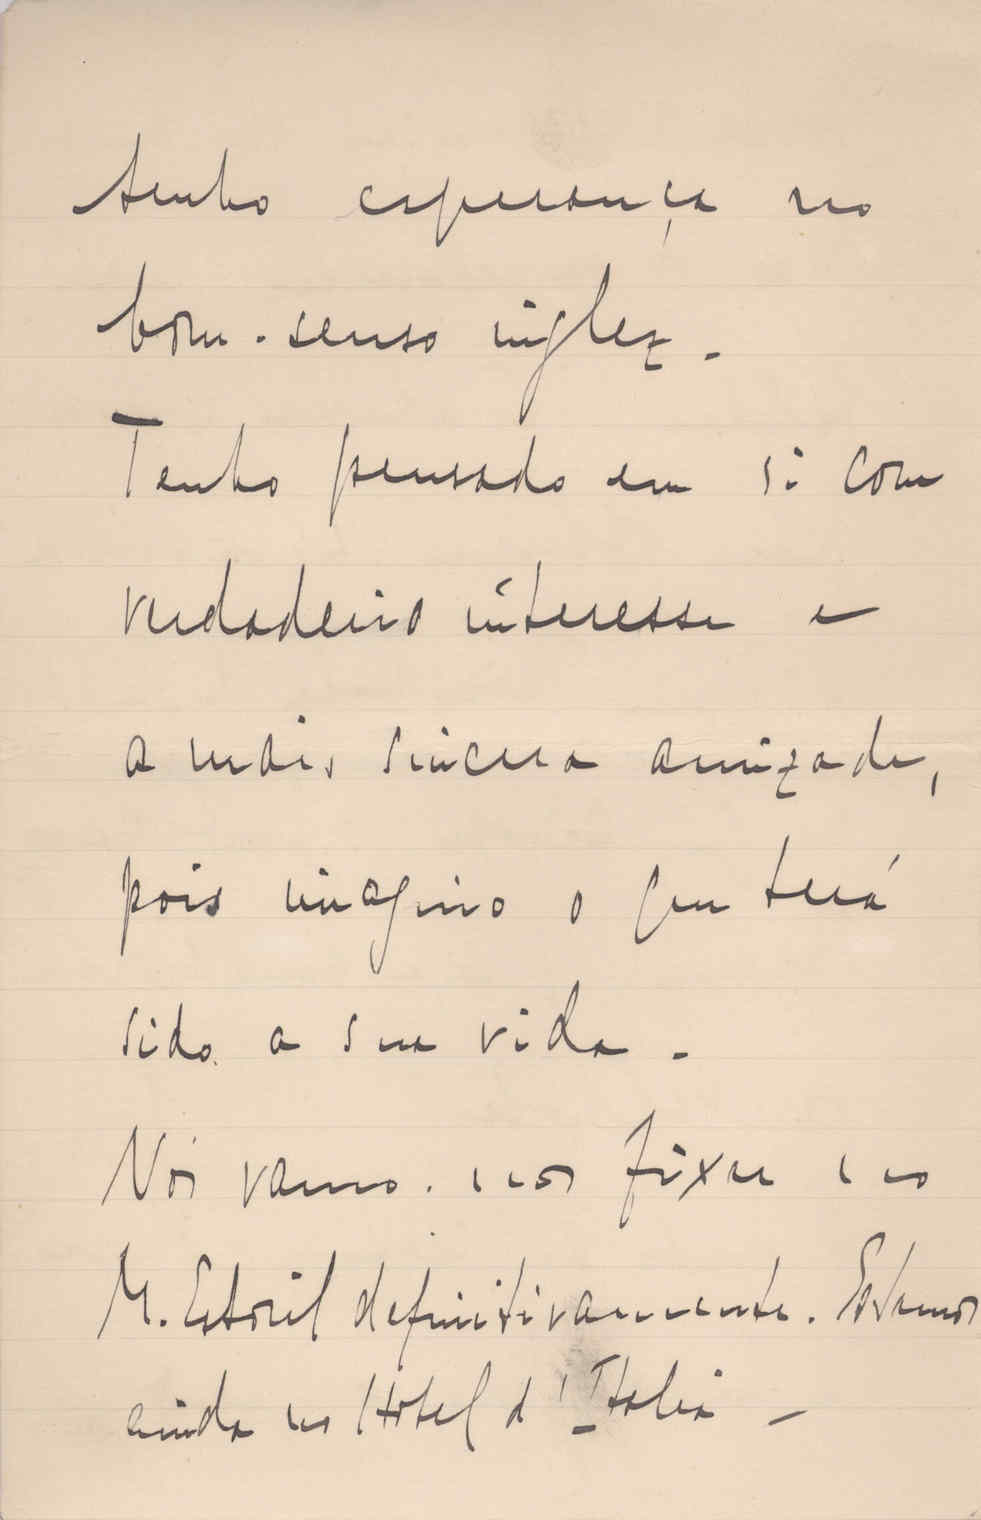 tenho esperança no
bom-senso inglez.
Tenho pensado em si com
verdadeiro interesse e
a mais sincera amizade,
pois imagino o que terá
sido a sua vida.
Nós vamos nos fixar no
M. Estoril definitivamente. Estamos
ainda no Hotel d'Italia -